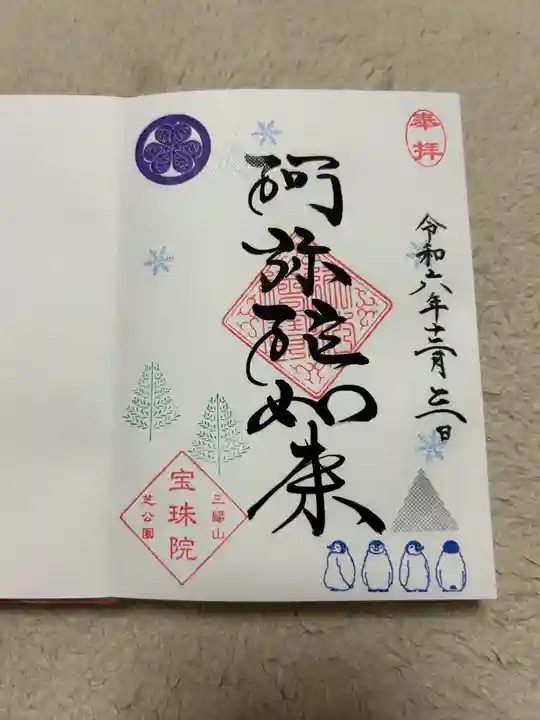 奉拝
令和六年十二月
日
阿弥陀如来
三縁山
宝珠院
芝公園